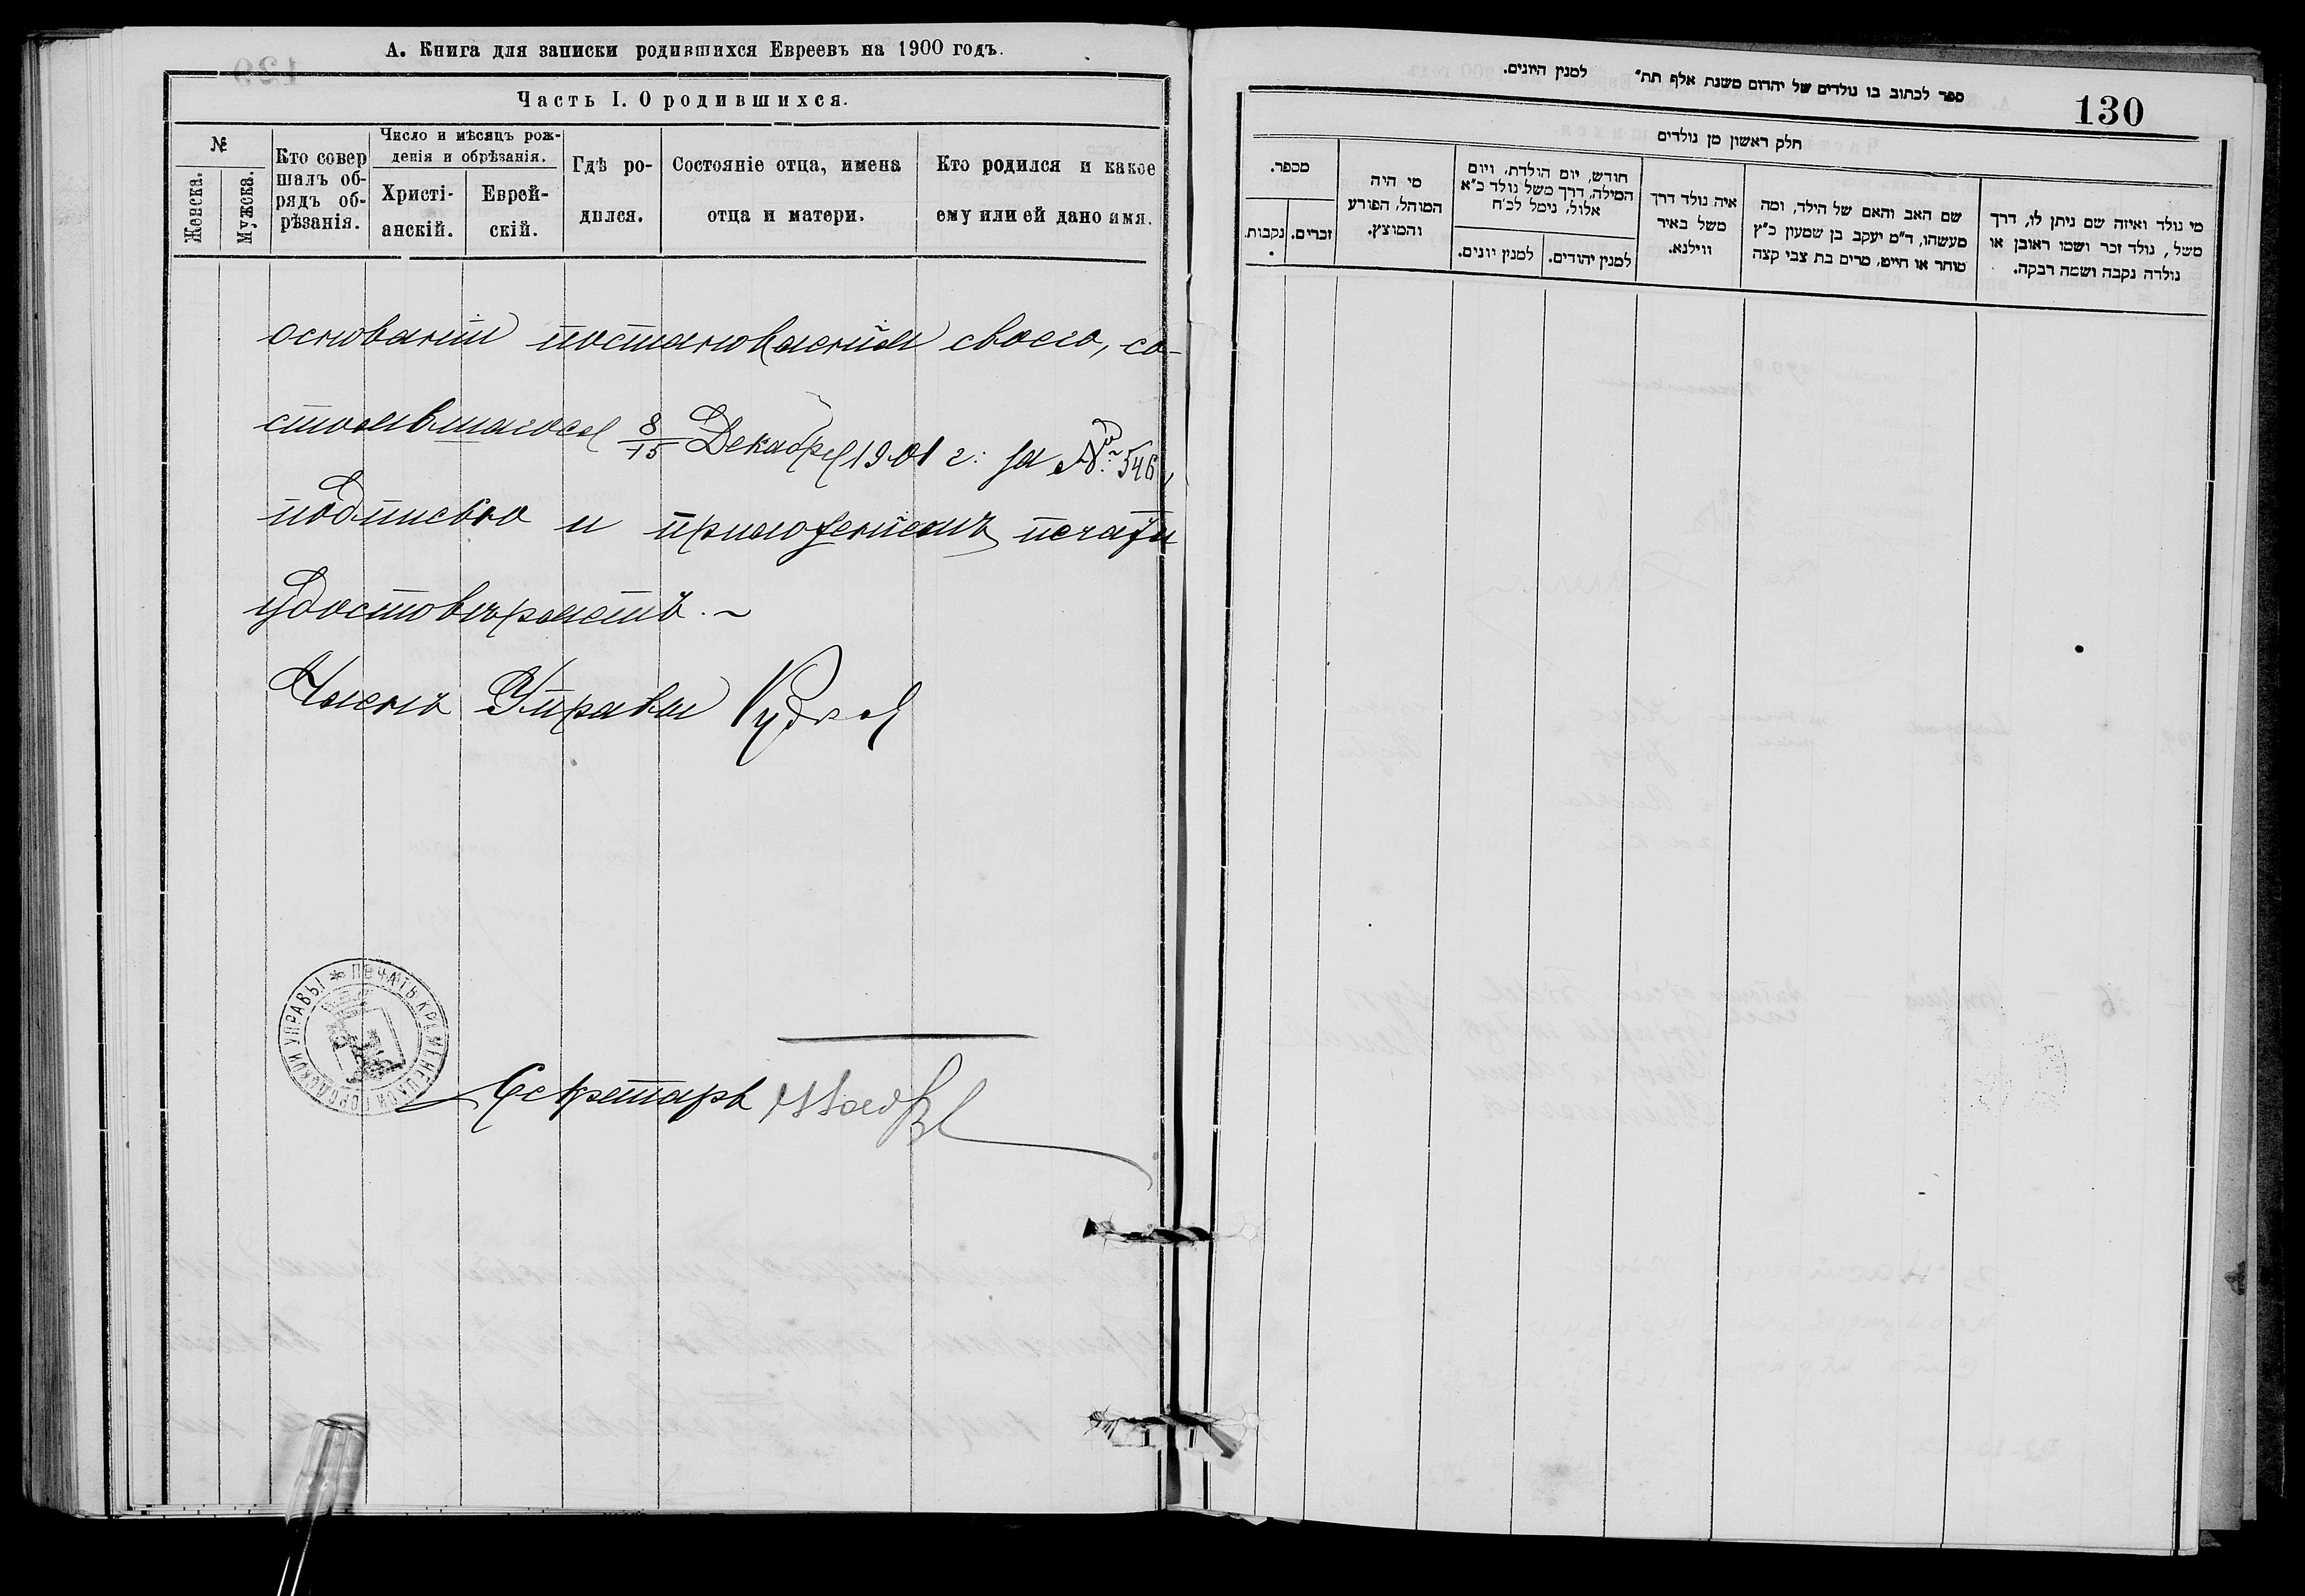 А. Книга для записки родившихся Евреевъ на 1900 годъ.
Часть I. О родившихся.
№
Женска.
Мужска.
Кто совер
шалъ об-
рядъ об-
рѣзанія.
Число и мѣсяцъ рож-
денія и обрѣзанія.
Христі-
анскій.
Еврей-
скій.
Гдѣ ро-
дился.
Состояніе отца, имена
отца и матери.
Кто родился и какое
ему или ей дано имя.
основаніи постановленія своего, со-
стоявшагося 8/15 Декабря 1901 г. за № 546,
подписью и приложеніемъ печати
удостовѣряетъ. ~
Членъ Управы
ПЕЧАТЬ КРЕМЕНЕЦКОЙ ГОРОДСКОЙ УПРАВЫ
Секретарь
ספר לכתוב בו נולדים של יהדום משנת אלף תת״ למנין היונים.
130
חלק ראשון מן נולדים
מספר.
נקבות.
זכרים.
מי היה
המוהל, הפורע
והמוצץ.
חודש, יום הולדת, ויום
המילה, דרך משל נולד כ״א
אלול, נימל לכ״ח
למנין יונים.
למנין יהודים.
איה נולד דרך
משל באיר
ווילנא.
שם האב והאם של הילד, ומה
מעשהו, ד״מ יעקב בן שמעון כ״ץ
סוחר או חייט, מרים בת צבי קצה
מי נולד ואיזה שם ניתן לו, דרך
משל, נולד זכר ושמו ראובן או
נולדה נקבה ושמה רבקה.